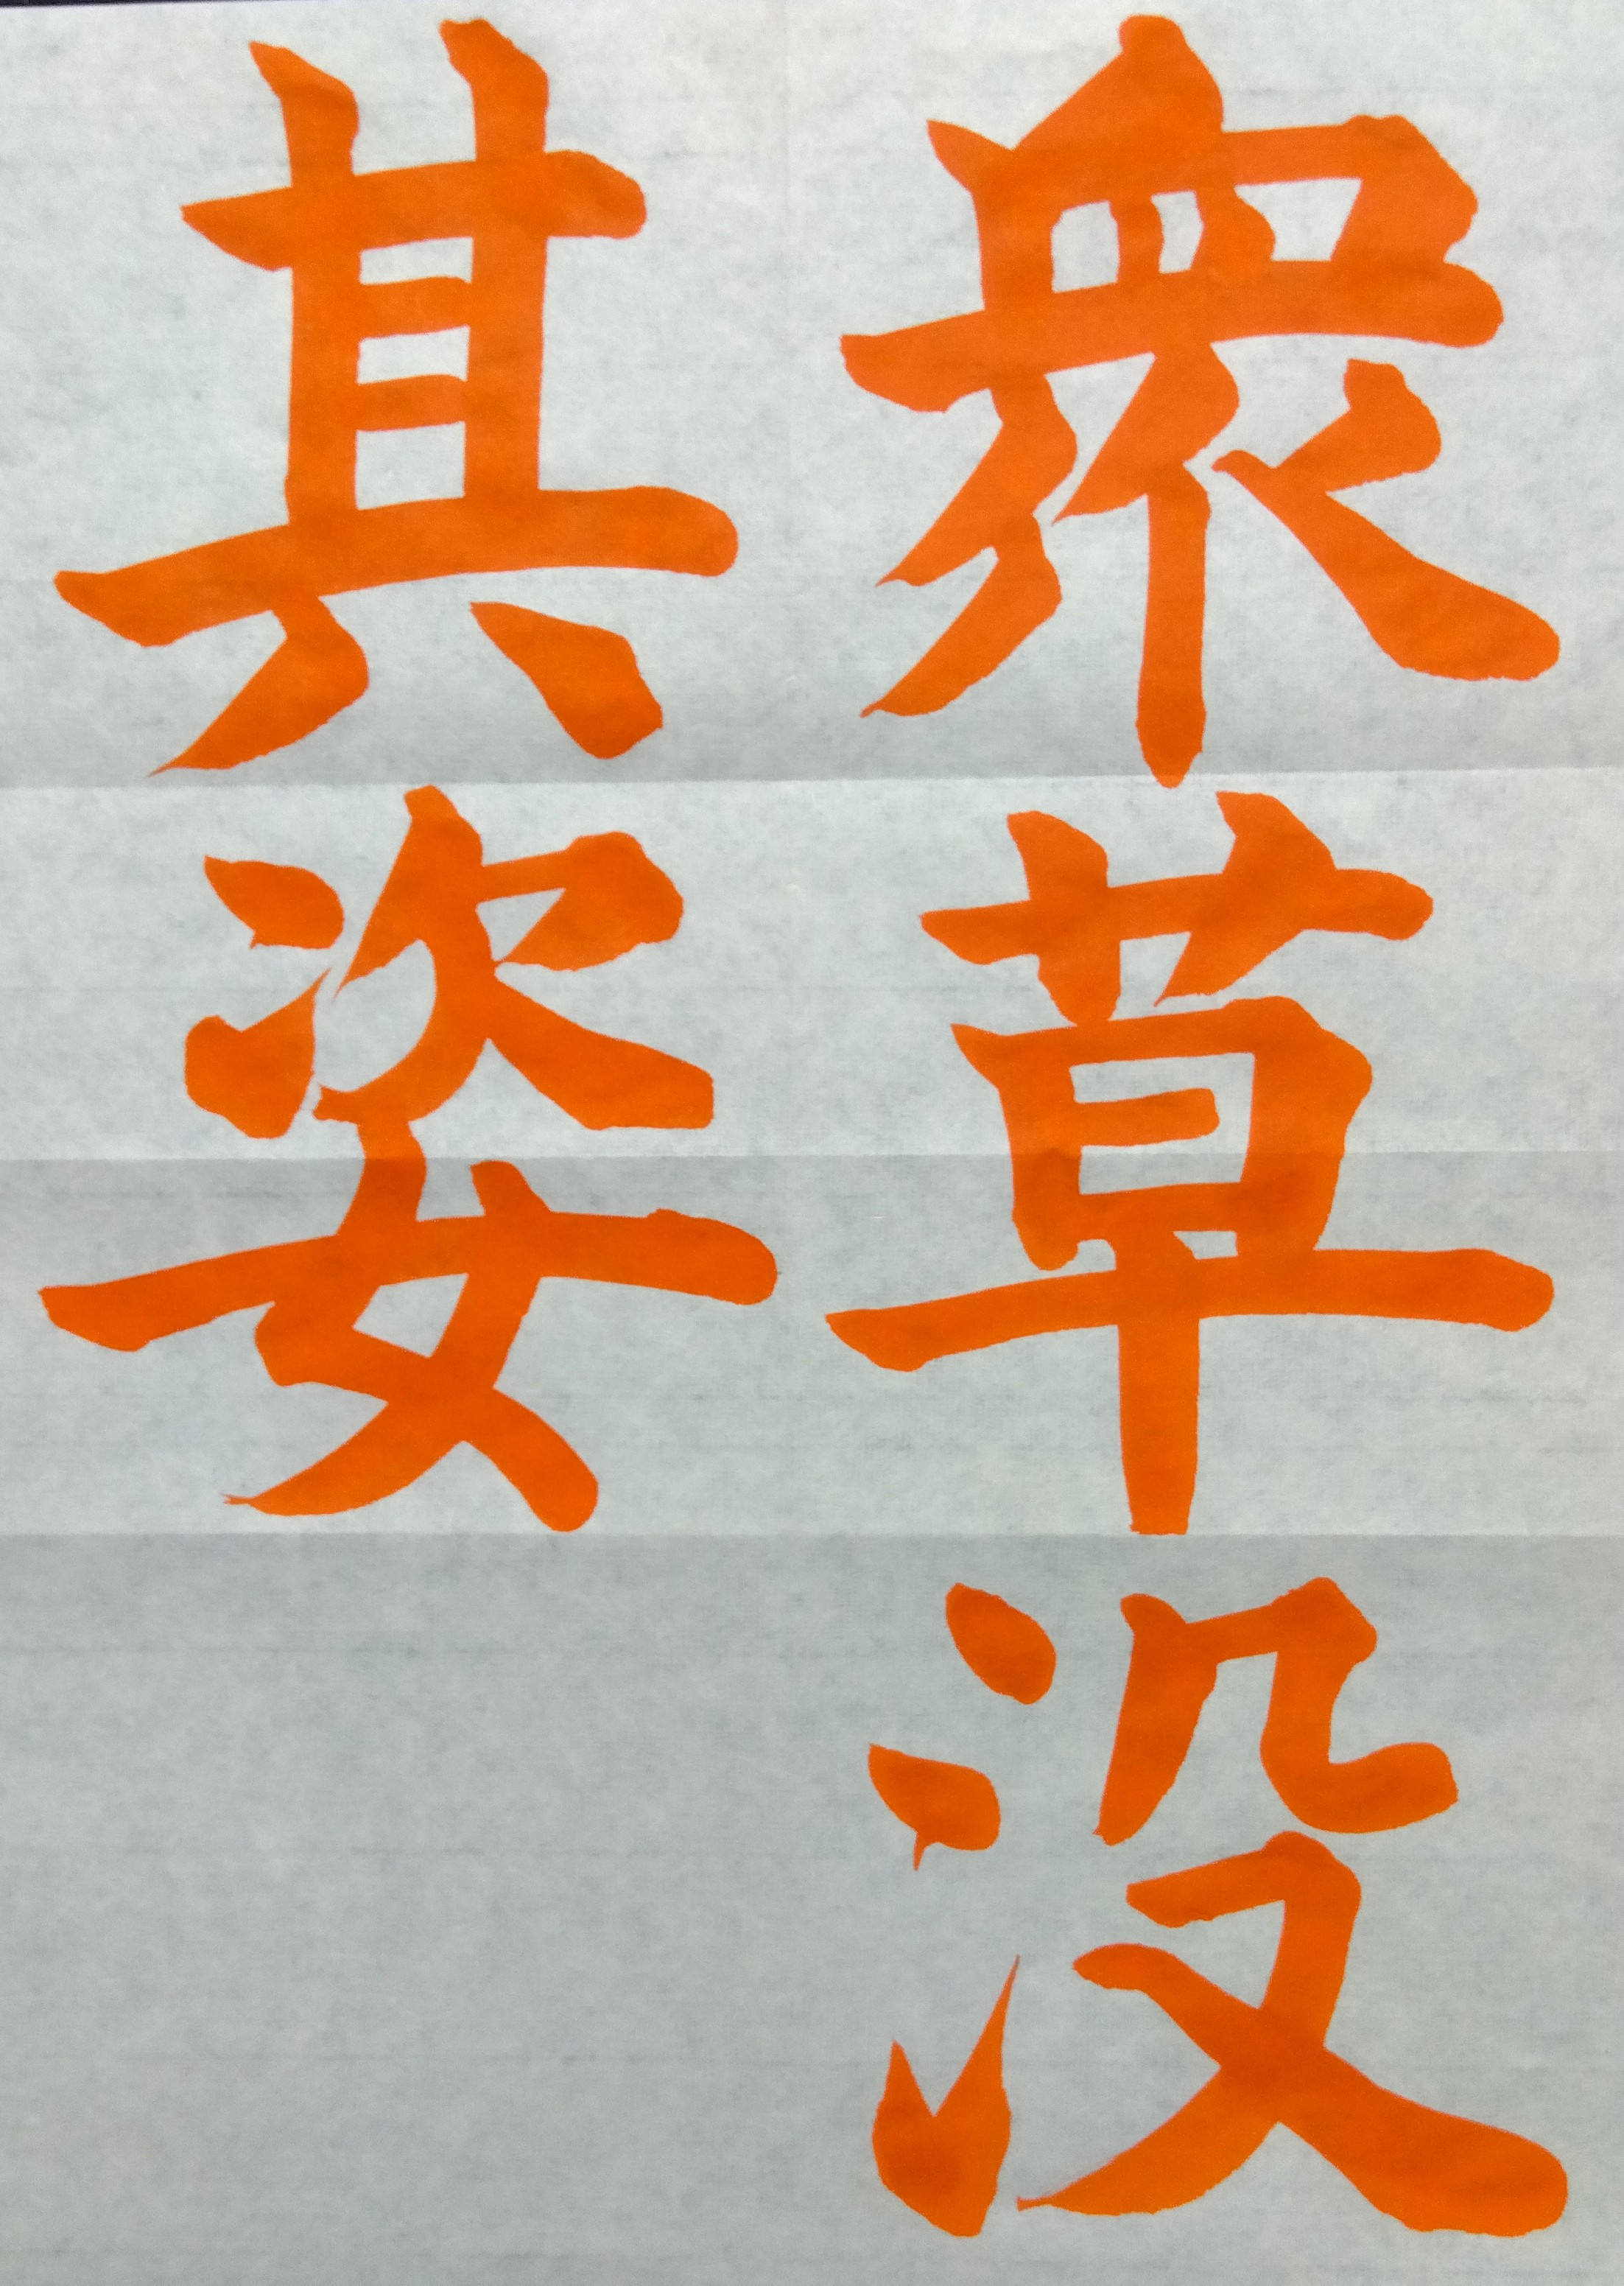 衆草没
其姿